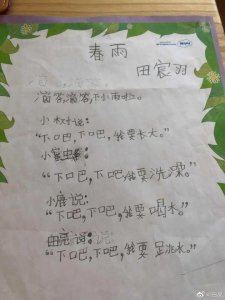 春雨
田宸羽
滴答,滴答,下小雨啦。
小树说:
"下吧,下吧,我要长大。"
小昆虫说:
"下吧,下吧,我要洗澡。"
小鹿说:
"下吧,下吧,我要喝水。"
"下吧,下吧,我要跳水。"